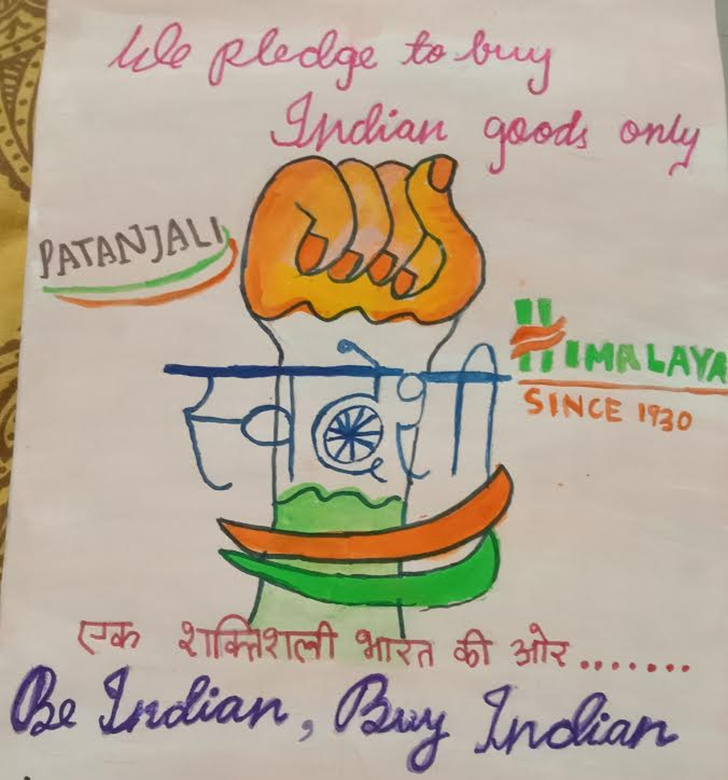 We pledge to buy
Indian goods only
PATANJALI
HIMALAYA
SINCE 1930
स्वदेशी
एक शक्तिशली भारत की ओर.......
Be Indian, Buy Indian